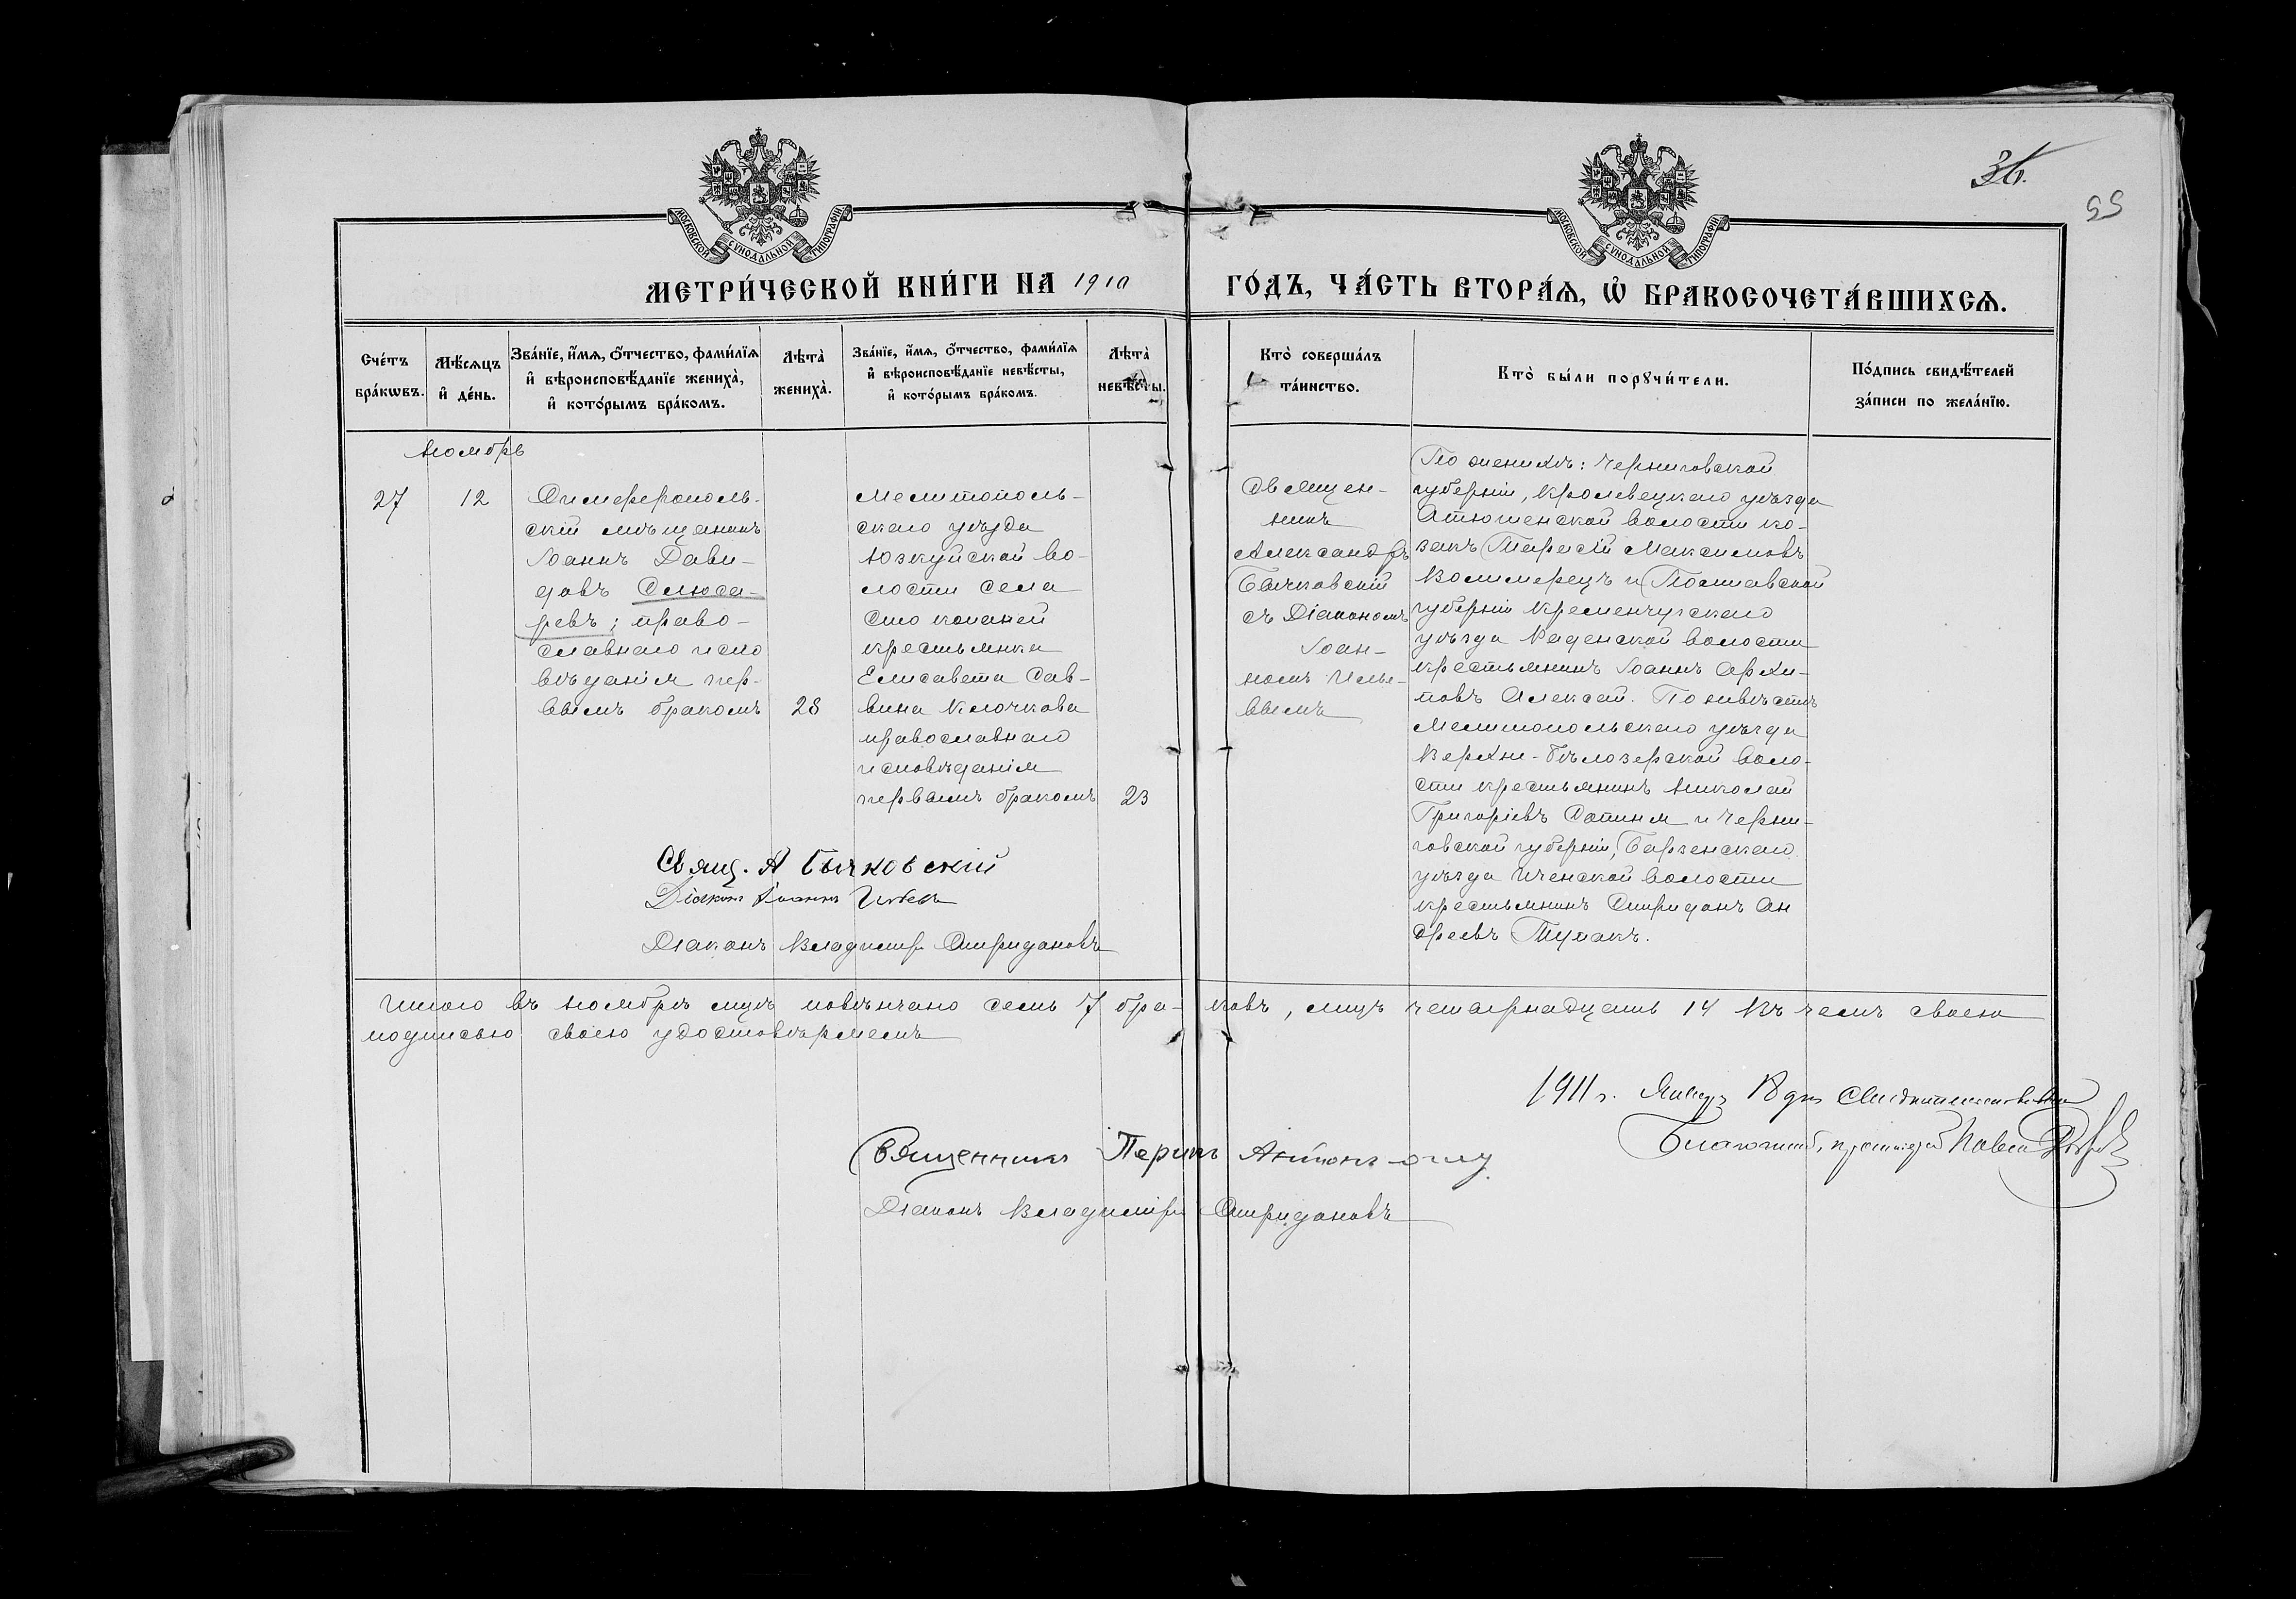 36.
55
МОСКОВСКОЙ СѴНОДАЛЬНОЙ ТИПОГРАФІИ
МОСКОВСКОЙ СѴНОДАЛЬНОЙ ТИПОГРАФІИ
МЕТРИ́ЧЕСКОЙ КНИ́ГИ НА 1910 ГО́ДЪ, ЧА́СТЬ ВТОРА́Ѧ, Ѽ БРАКОСОЧЕТА́ВШИХСѦ.
Сче́тъ бра́кѡвъ.
Мѣ́сѧцъ и҆ де́нь.
Зва́нїе, и҆́мѧ, ѻ҆́тчество, фами́лїѧ
и҆ вѣроисповѣ́данїе жениха̀,
и҆ кото́рымъ бра́комъ.
Лѣта̀ жениха̀.
Зва́нїе, и҆́мѧ, ѻ҆́тчество, фами́лїѧ
и҆ вѣроисповѣ́данїе невѣ́сты,
и҆ кото́рымъ бра́комъ.
Лѣта̀ невѣ́сты.
Кто̀ соверша́лъ
та́инство.
Кто̀ бы́ли порꙋчи́тели.
По́дпись свидѣ́телей
за́писи по жела́нїю.
Ноябрь
27
12
Симферополь-
скій мѣщанинъ
Іоаннъ Дави-
довъ Слюса-
ревъ; право-
славнаго испо
вѣданія пер-
вымъ бракомъ
28
Мелитополь-
скаго уѣзда
Юзкуйской во-
лости села
Сто копаней
крестьянка
Елисавета Сав-
вина Клочкова
православнаго
исповѣданія
первымъ бракомъ
23
Священ-
никъ
Александръ
Бычковскій
съ Діакономъ
Іоан-
номъ Илье-
вымъ
По женихѣ: Черниговской
губерніи, Кролевецкаго уѣзда
Атюшенской волости ко-
закъ Тарасій Максимовъ
Коломіецъ и Полтавской
губерніи Кременчугскаго
уѣзда Каденской волости
крестьянинъ Іоаннъ Архи-
повъ Алексай. По нивѣстѣ
Мелитопольскаго уѣзда
Верхне-Бѣлозерской воло-
сти крестьянинъ Николай
Григоріевъ Сопиня и Черни-
говской губерніи, Барзенскаго
уѣзда Иченской волости
крестьянинъ Спиридонъ Ан
дреевъ Тумакъ.
Свящ. А Бычковскій
Діаконъ Іоаннъ
Діаконъ Владиміръ Спиридоновъ
Итого въ ноябрѣ мцѣ повѣнчано семь 7 бра-ковъ, лицъ четырнадцать 14 Въ чемъ своею
подписью своею удостовѣряемъ
1911 г. Января дня Свидѣтельствовалъ
Благочинный, протоіерей Павелъ
Священникъ
Діаконъ Владиміръ Спиридоновъ